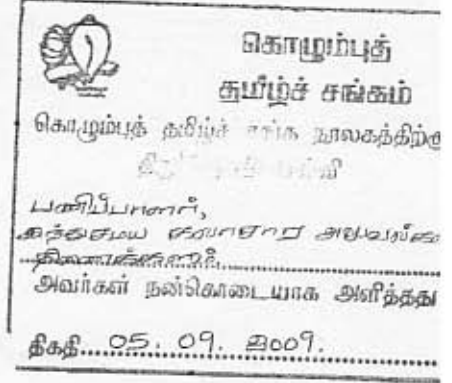 கொழும்புத்
தமிழ்ச் சங்கம்
கொழும்புத் தமிழ்ச் சங்க நூலகத்திற்கு
பணிப்பாளர்,
இந்துசமய கலாசார அலுவல்கள்
திணைக்களம்
அவர்கள் நன்கொடையாக அளித்தது
திகதி..... 05. 09. 2009.